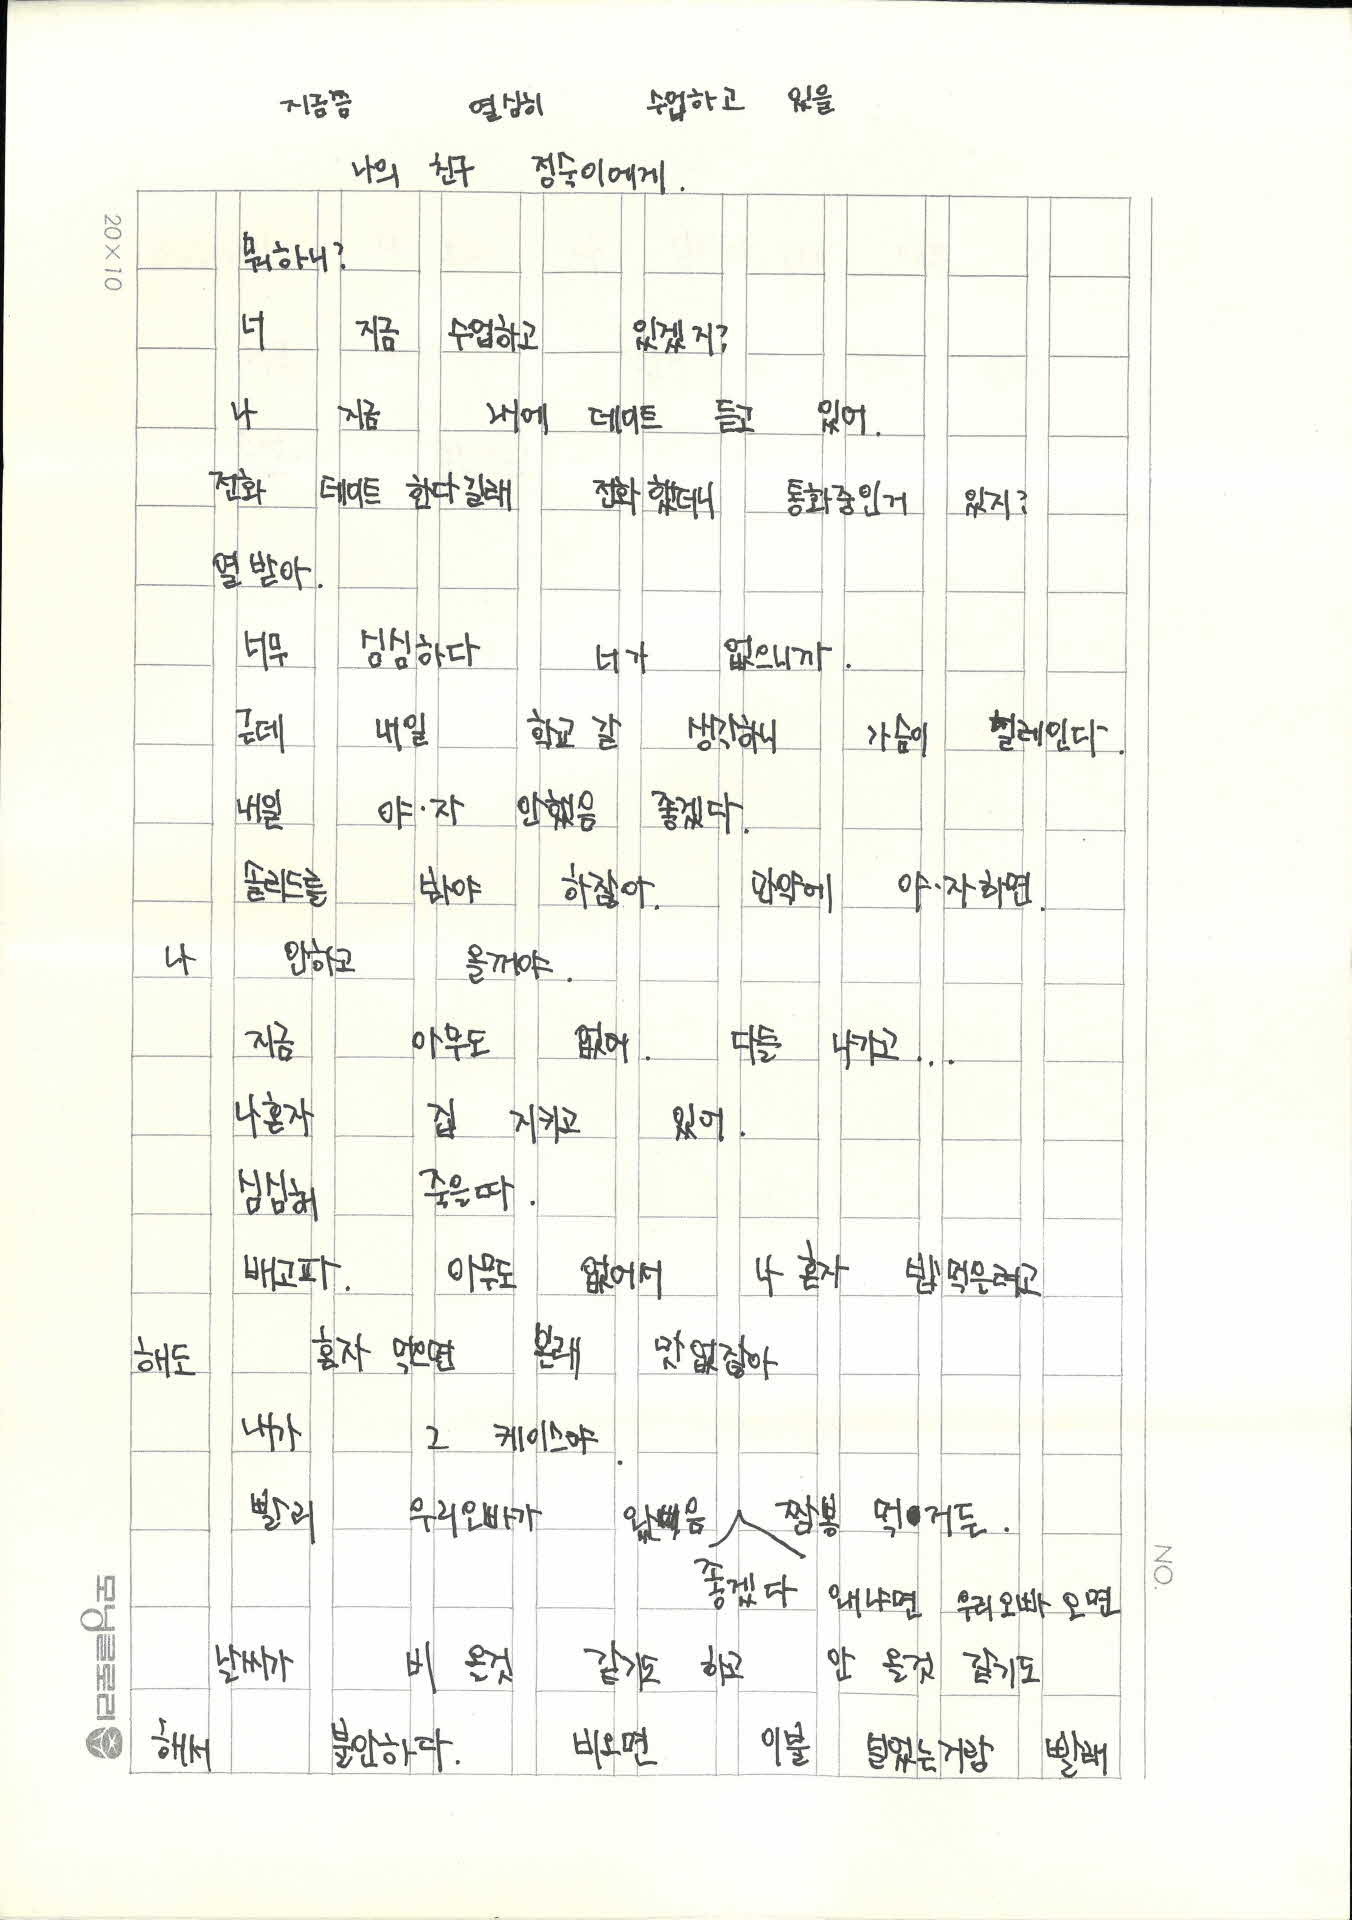 지금쯤 열심히 수업하고 있을
나의 친구 정숙이에게.
20×10
뭐하니?
너 지금 수업하고 있겠지?
나 지금 내에 데이트 듣고 있어.
전화 데이트 한다길래 전화했더니 통화중인거 있지?
열받아.
너무 심심하다 너가 없으니까.
근데 내일 학교 갈 생각하니 가슴이 설레인다.
내일 야·자 안했음 좋겠다.
솔리드를 봐야 하잖아. 만약에 야·자하면.
나 안하고 올꺼야.
지금 아무도 없어. 다들 나가고...
나혼자 집 지키고 있어.
심심해 죽은따.
배고파. 아무도 없어서 나 혼자 밥먹으려고
해도 혼자 먹으면 본래 맛없잖아
내가 그 케이스야.
빨리 우리오빠가 왔음 짬뽕 먹거든.
좋겠다 왜냐면 우리오빠 오면
날씨가 비 온것 같기도 하고 안 올것 같기도
해서 불안하다. 비오면 이불 널었는거랑 빨래
NO.
모닝글로리